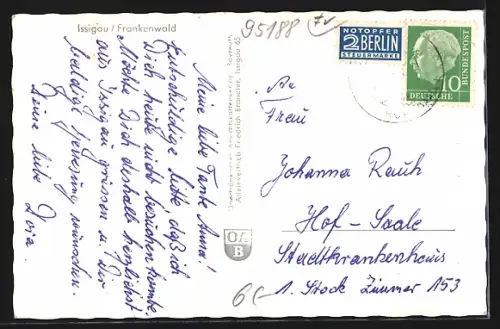 Issigau / Frankenwald
95188
Meine liebe Tante Anna!
Entschuldige bitte, daß ich
Dich heute nicht besuchen konnte.
Möchte Dich deshalb herzlichst
aus Issigau grüssen u. Dir
baldige Genesung wünschen.
Deine liebe Dora.
Alleinvertrieb Friedrich Browa Issigau 65
O/
B
NOTOPFER
2 BERLIN
STEUERMARKE
DEUTSCHE
BUNDESPOST
10
An
Frau
Johanna Rauh
Hof-Saale
Stadtkrankenhaus
1. Stock Zimmer 153
6,-